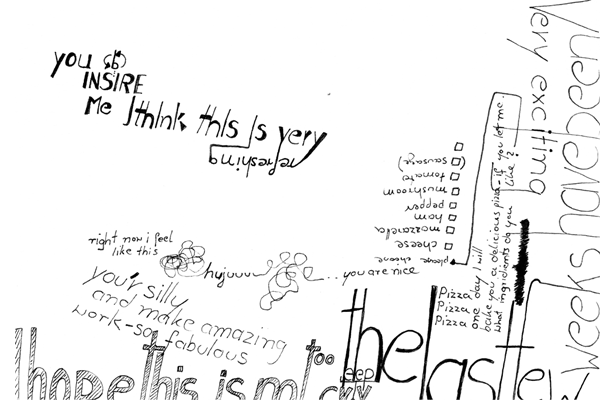 you
INSIRE
Me I think this is very
refreshing
right now i feel
like this
hujuuu
you are nice
your silly
and make amazing
work-so fabulous
I hope this is not too
the last few
weeks have been
very exciting
Pizza
Pizza
Pizza
one day I will
bake you a delicious pizza - if you let me.
what ingridients do you like?
please choose
cheese
mozzarella
ham
pepper
mushroom
tomato
(sausage)